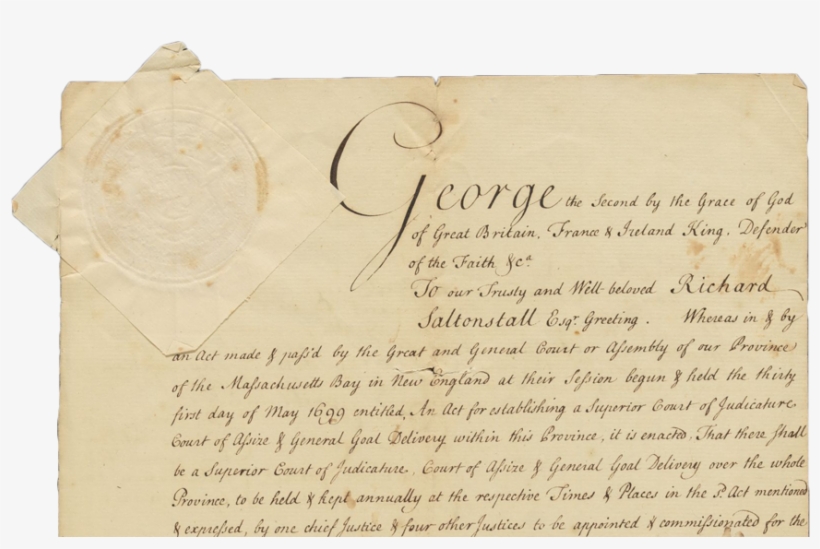 George the Second by the Grace of God
of Great Britain, France & Ireland King, Defender
of the Faith &cᵃ
To our Trusty and Well beloved Richard
Saltonstall Esqʳ. Greeting. Whereas in & by
an Act made & pass'd by the Great and General Court or Assembly of our Province
of the Massachusetts Bay in New England at their Session begun & held the thirty
first day of May 1699 entitled, An Act for establishing a Superior Court of Judicature
Court of Assize & General Goal Delivery within this Province, it is enacted, That there shall
be a Superior Court of Judicature, Court of Assize & General Goal Delivery over the whole
Province, to be held & kept annually at the respective Times & Places in the sᵈ. Act mentioned
& expressed, by one chief Justice & four other Justices to be appointed & commissionated for the